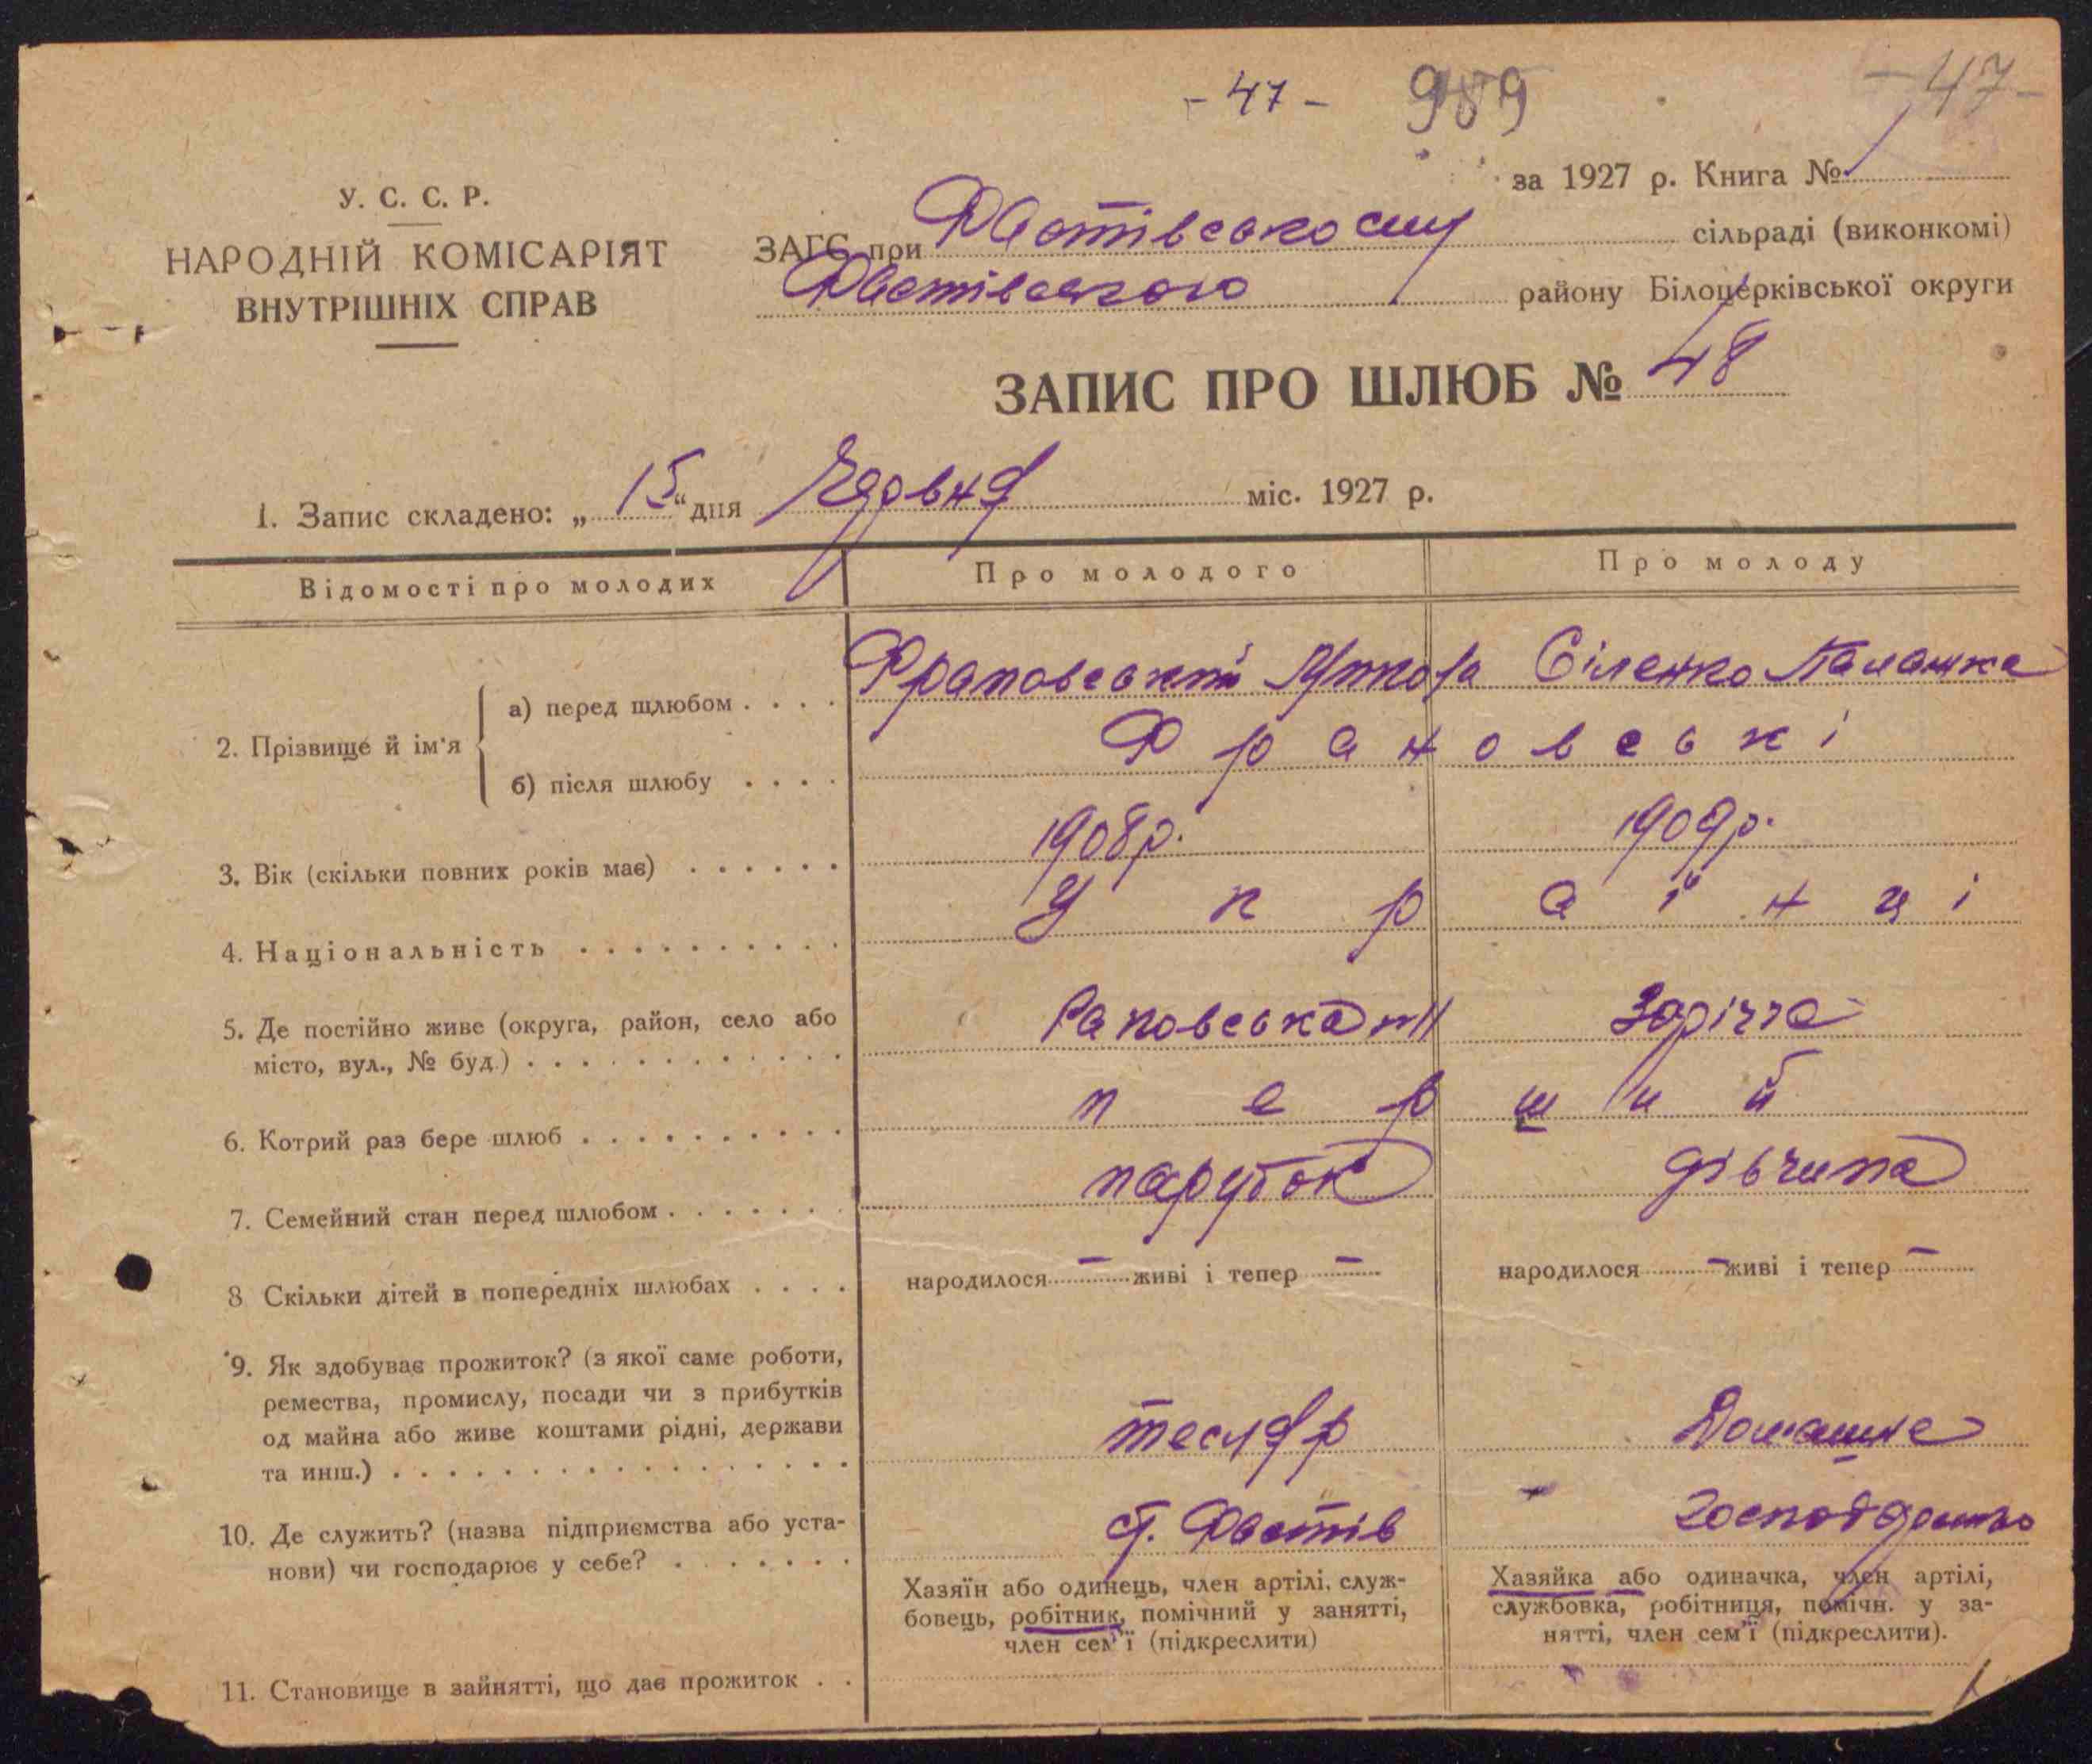 - 47 -
989
- 47 -
за 1927 р. Книга № 1
У. С. С. Р.
НАРОДНІЙ КОМІСАРІЯТ
ВНУТРІШНІХ СПРАВ
ЗАГС при Фастівському сільраді (виконкомі)
Фастівського району Білоцерківської округи
ЗАПИС ПРО ШЛЮБ № 48
1. Запис складено: „ 15 “ дня міс. 1927 р.
Відомості про молодих
Про молодого
Про молоду
2. Прізвище й ім'я
а) перед шлюбом . . . .
Франовський Микола
Сіленко Палажка
б) після шлюбу . . . .
Франовські
3. Вік (скільки повних років має) . . . . . .
1908р.
1909р.
4. Національність . . . . . . . . . .
Українці
5. Де постійно живе (округа, район, село або
місто, вул., № буд.) . . . . . . . . . . . .
Заріччя
6. Котрий раз бере шлюб . . . . . . . . . .
перший
7. Семейний стан перед шлюбом . . . . . . .
парубок
дівчина
8 Скільки дітей в попередніх шлюбах . . . .
народилося — живі і тепер —
народилося — живі і тепер —
9. Як здобуває прожиток? (з якої саме роботи,
ремества, промислу, посади чи з прибутків
од майна або живе коштами рідні, держави
та инш.) . . . . . . . . . . . . . . . . .
тесляр
Домашнє
10. Де служить? (назва підприємства або уста-
нови) чи господарює у себе? . . . . . . .
ст. Фастів
господарство
Хазяїн або одинець, член артілі, служ-
бовець, робітник, помічний у занятті,
член сем'ї (підкреслити)
Хазяйка або одиначка, член артілі,
службовка, робітниця, помічн. у за-
нятті, член сем'ї (підкреслити).
11. Становище в зайнятті, що дає прожиток . .